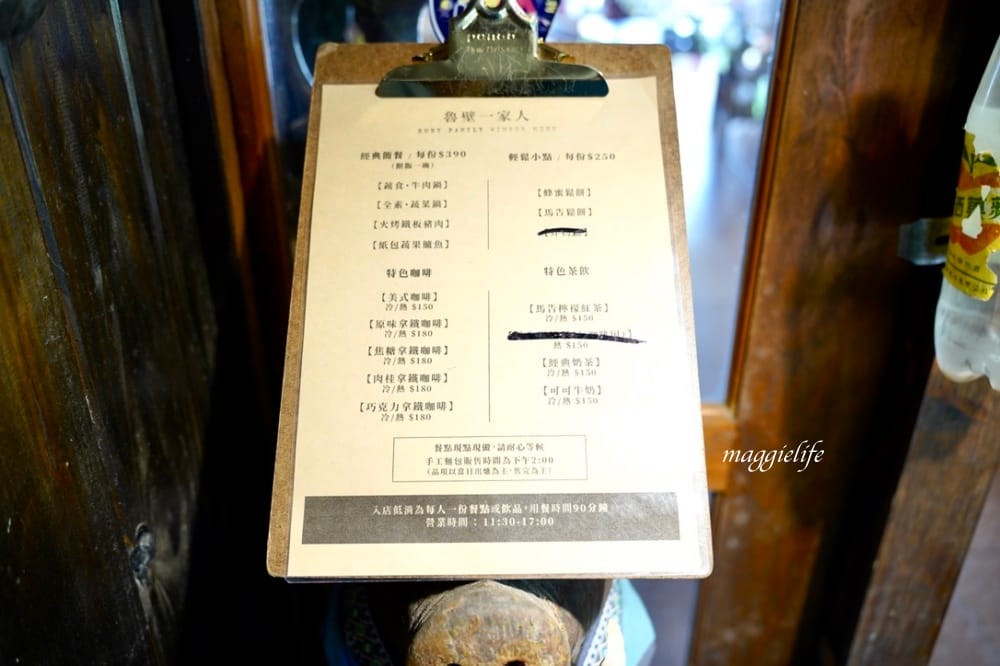 魯壁一家人
RUBY FAMILY WINNER MENU
經典簡餐 / 每份$390
(附飯一碗)
【蔬食·牛肉鍋】
【全素·蔬菜鍋】
【火烤鐵板豬肉】
【紙包蔬果鱸魚】
輕鬆小點 / 每份$250
【蜂蜜鬆餅】
【馬告鬆餅】
特色咖啡
【美式咖啡】
冷/熱 $150
【原味拿鐵咖啡】
冷/熱 $180
【焦糖拿鐵咖啡】
冷/熱 $180
【肉桂拿鐵咖啡】
冷/熱 $180
【巧克力拿鐵咖啡】
冷/熱 $180
特色茶飲
【馬告檸檬紅茶】
冷/熱 $150
熱 $150
【經典奶茶】
冷/熱 $150
【可可牛奶】
冷/熱 $150
餐點現點現做,請耐心等候
手工麵包販售時間為下午2:00
(品項以當日出爐為主,售完為主)
入店低消為每人一份餐點或飲品,用餐時間90分鐘
營業時間：11:30-17:00
maggielife